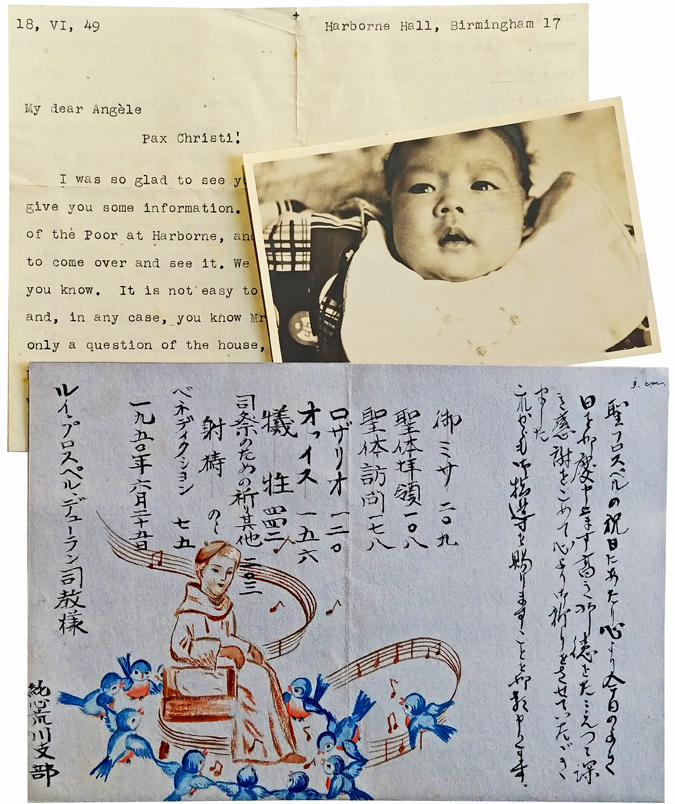 18, VI, 49
Harborne Hall, Birmingham 17
My dear Angèle
Pax Christi!
I was so glad to see
give you some information.
of the Poor at Harborne,
to come over and see it. We
you know. It is not easy to
and, in any case, you know
only a question of the house,
J. M.
聖プロスペルの祝日にあたり心より今日のよき
日を御慶び申上ます高き御徳をたたえつつ深
き感謝をこめて心よりお祈りをさせていただき
ました
これからも御指導を賜りますことを御願い申上げます。
御ミサ 二〇九
聖体拝領 一〇八
聖体訪問 七八
ロザリオ 一二〇
オフイス 一五六
犠牲 四四二
司祭のための祈り其他 二〇三
射祷
ベネディクション 七五
一九五〇年六月二十五日
ルイ・プロスペル・デューラン司教様
純心荒川支部